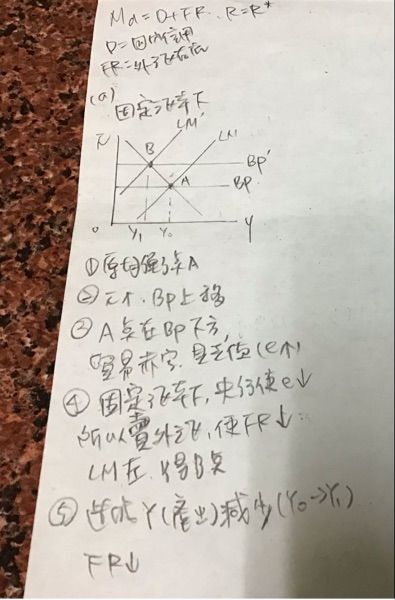 Md = D+FR. R=R*
D=國內信用
FR=外匯存底
(a)
固定汇率下
LM'
LM
B
Bp'
A
Bp
0
Y1
Y0
Y
①原均衡点A
②
个. Bp上移
③A点在Bp下方,
貿易赤字. 貶值(e↑)
④固定汇率下,央行使e↓
所以賣外汇,使FR↓
LM左 得B点
⑤ Y(產出)減少(Y0→Y1)
FR↓